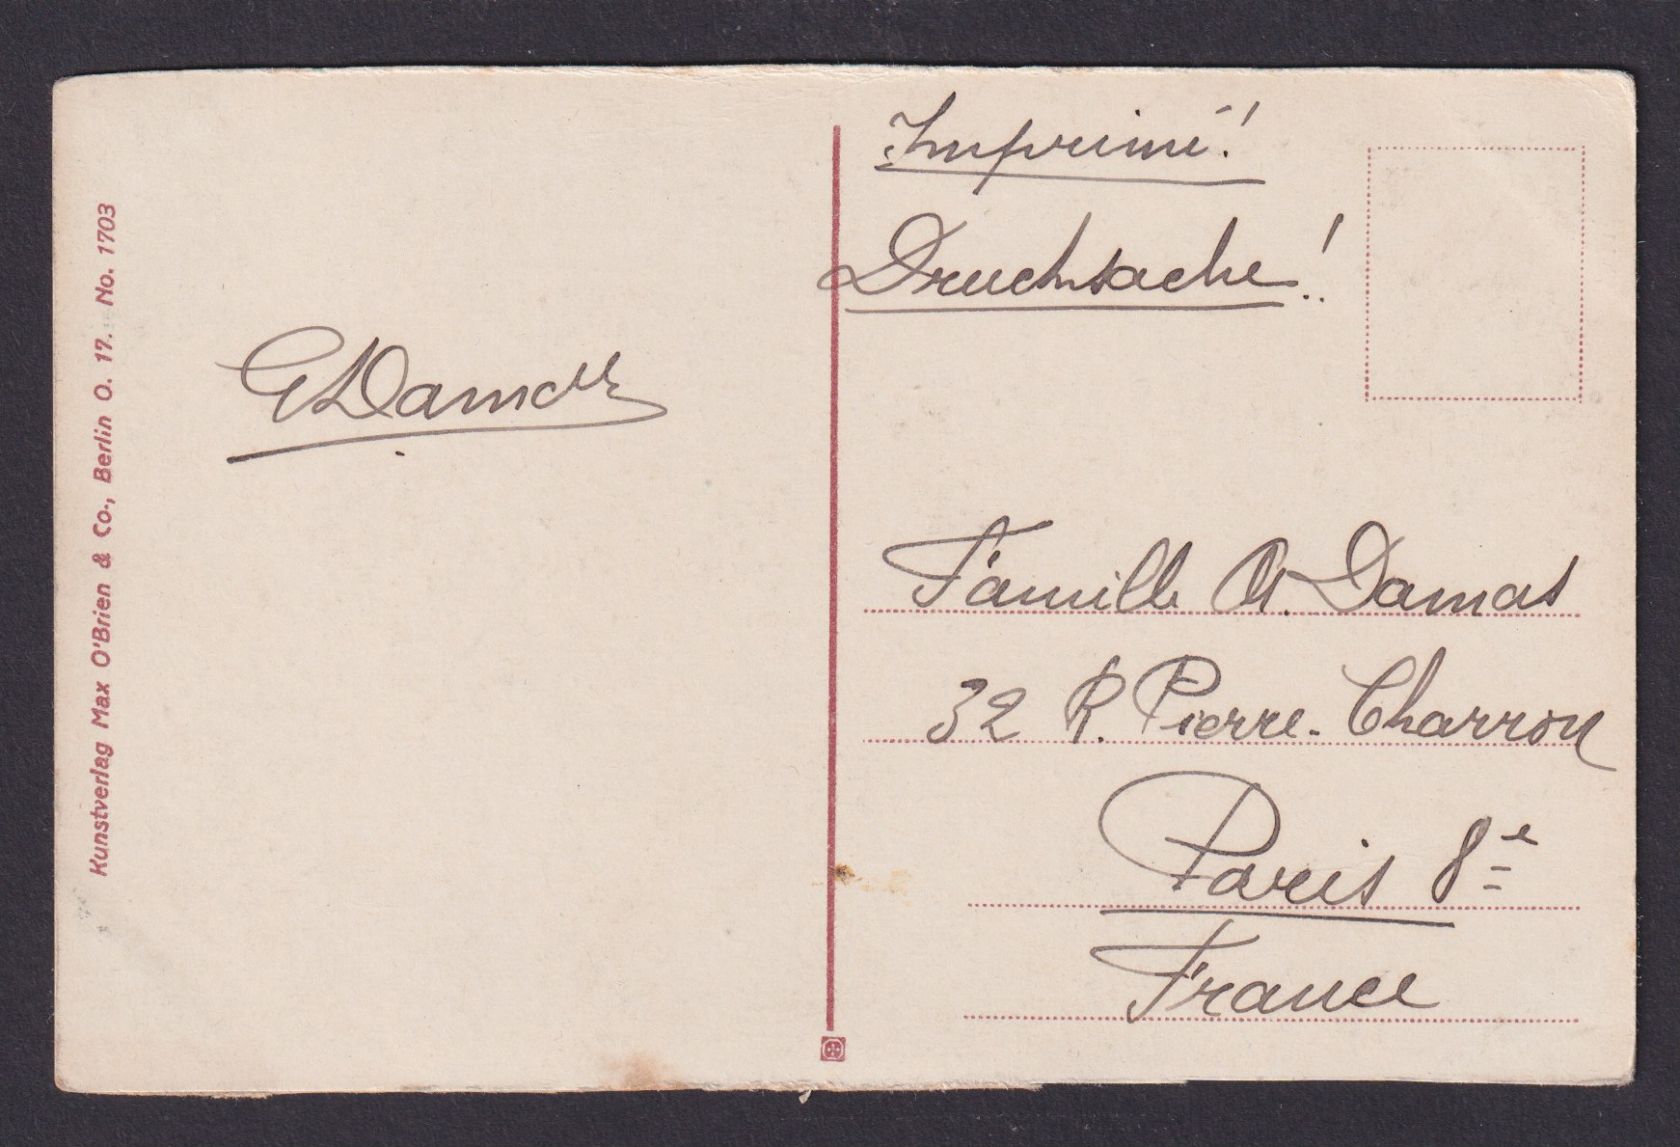 Kunstverlag Max O'Brien & Co., Berlin O. 17. No. 1703
Imprimé!
Drucksache!
Damas
Famille A. Damas
32 R. Pierre-Charron
Paris 8e
France